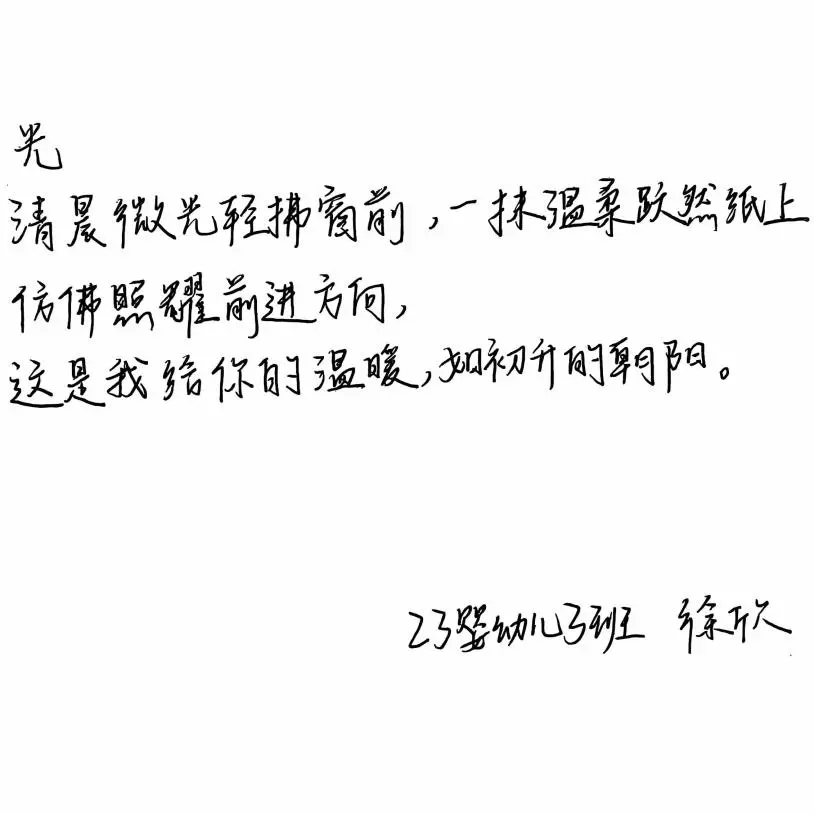 光
清晨微光轻拂窗前,一抹温柔跃然纸上
仿佛照耀前进方向,
这是我给你的温暖,如初升的朝阳。
23婴幼儿3班 徐欣